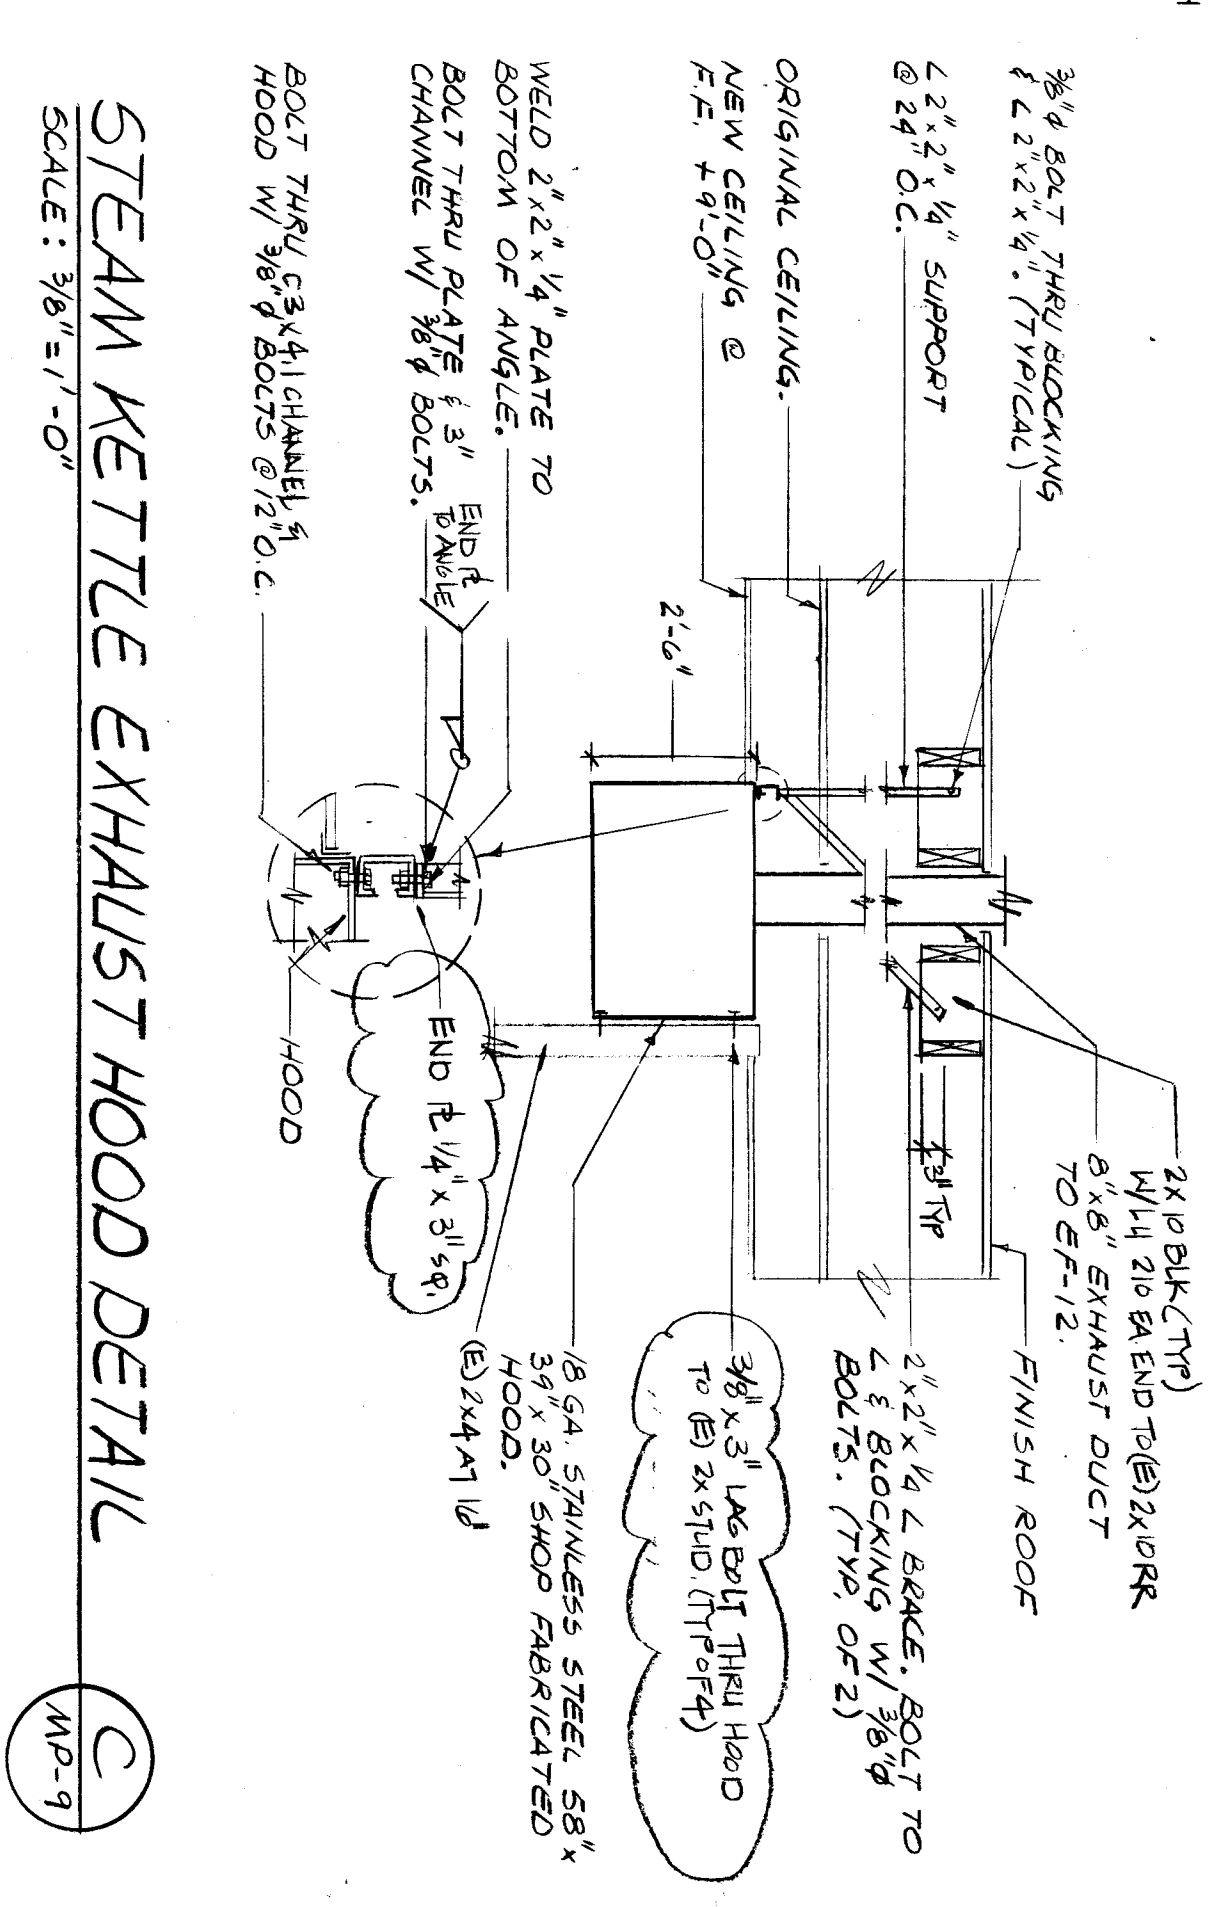 3/8"φ BOLT THRU BLOCKING
& L 2"x2"x1/4". (TYPICAL)
L 2"x2"x1/4" SUPPORT
@ 24" O.C.
ORIGINAL CEILING.
NEW CEILING @
F.F. +9'-0"
WELD 2"x2"x1/4" PLATE TO
BOTTOM OF ANGLE.
BOLT THRU PLATE & 3"
CHANNEL W/ 3/8"φ BOLTS.
END ℞
TO ANGLE
BOLT THRU C3x4.1 CHANNEL &
HOOD W/ 3/8"φ BOLTS @ 12" O.C.
2'-6"
2x10 BLK (TYP)
W/ LU 210 EA. END TO (E) 2x10 RR
8"x8" EXHAUST DUCT
TO EF-12.
FINISH ROOF
3" TYP
2"x2"x1/4 L BRACE. BOLT TO
L & BLOCKING W/ 3/8"φ
BOLTS. (TYP. OF 2)
3/8"x3" LAG BOLT THRU HOOD
TO (E) 2x STUD. (TYP OF 4)
18 GA. STAINLESS STEEL 58"x
39"x30" SHOP FABRICATED
HOOD.
(E) 2x4 AT 16"
END ℞ 1/4"x3" SQ.
HOOD
STEAM KETTLE EXHAUST HOOD DETAIL
SCALE: 3/8"=1'-0"
C
MP-9